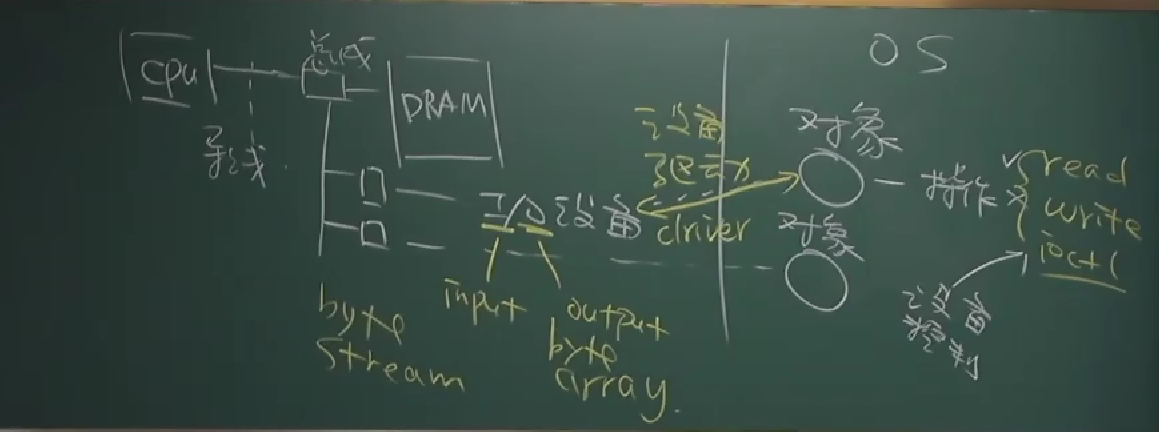 OS
cpu
总线
DRAM
导线
I/O设备
input
output
byte
stream
byte
array.
设备
驱动
driver
对象
对象
操作
read
write
ioctl
设备
控制